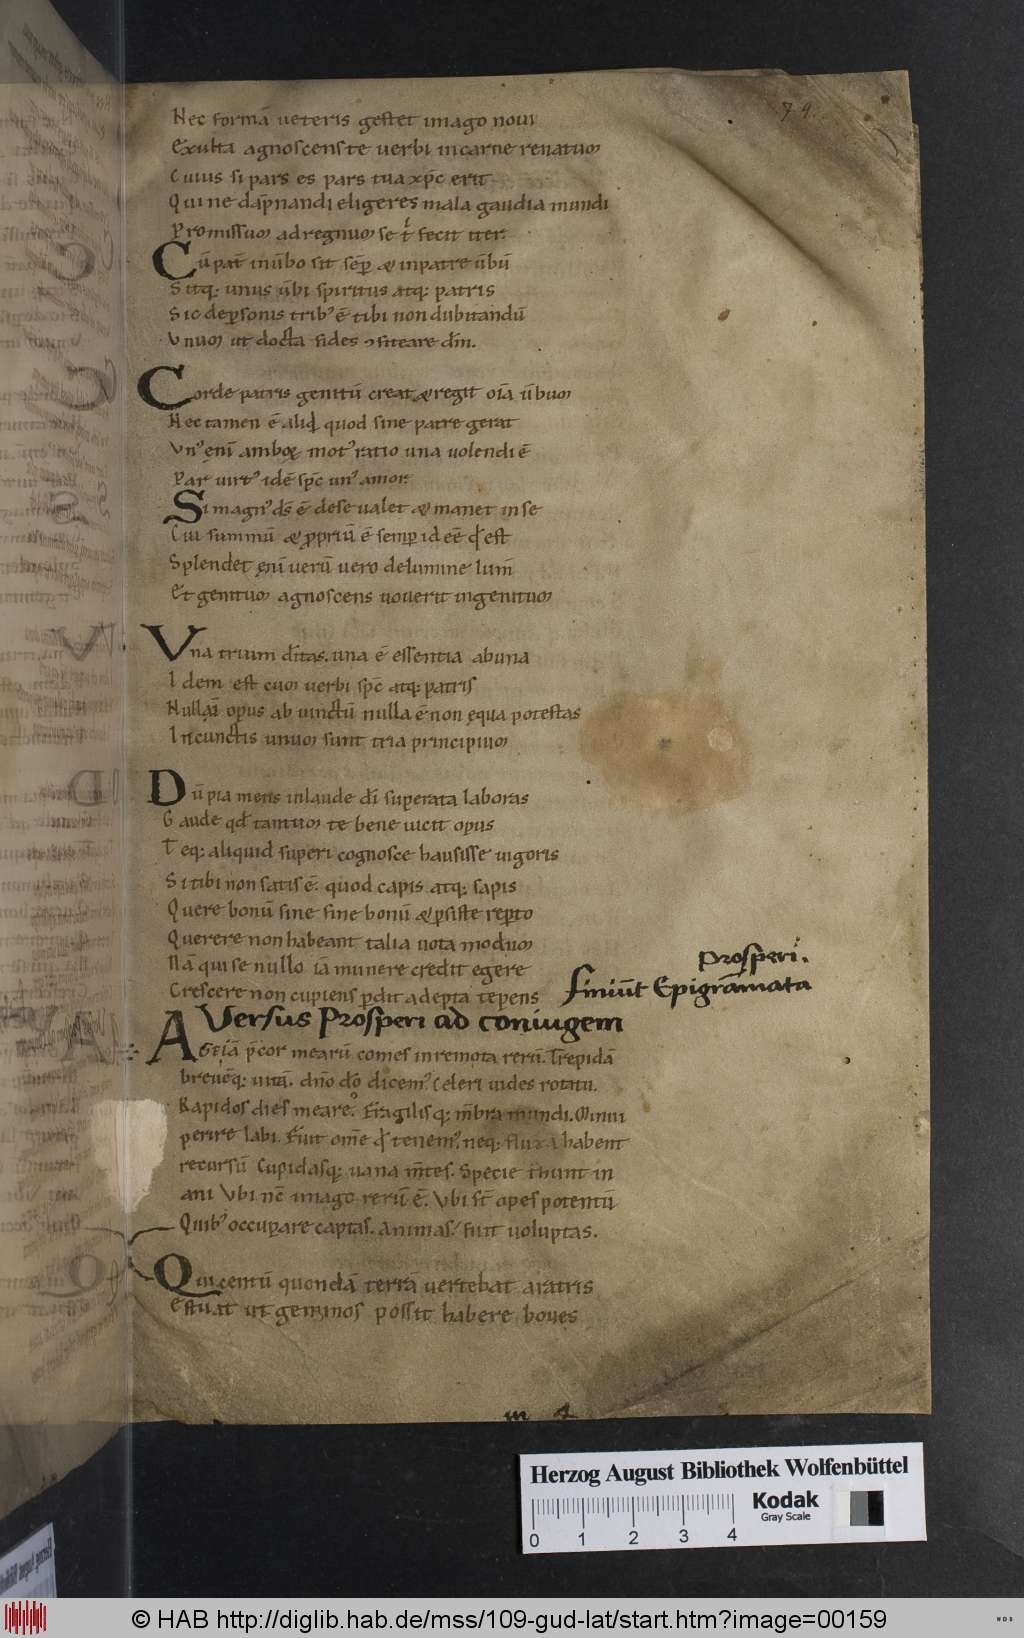 74.
Nec formā veteris gestet imago novi
Exulta agnoscens te verbi incarne renatum
Cuius si pars es pars tua xp̄c erit
Qui ne dāpnandi eligeres mala gaudia mundi
Promissum ad regnum se t' fecit iter.
Cū pat̄ in ūbo sit sēp & in patre ūbū
Sitq: unus ūbi spiritus atq: patris
Sic de psonis trib' ē tibi non dubitandū
Unum ut docta fides fiteare dm̄.
Corde patris genitū creat & regit oīa ūbum
Nec tamen ē aliqd quod sine patre gerat
Un' enī amboꝝ mot' ratio una volendi ē
Par virt' idē sp̄c un' amor.
Si magn' ds̄ ē de se valet & manet in se
Cui summū & ppriū ē semp id eē qd est
Splendet enī verū vero de lumine lum̄
Et genitum agnoscens noverit ingenitum
Una trium dītas. una ē essentia ab una
Idem est cum verbi sp̄c atq: patris
Nullaī opus ab vinctū nulla ē non equa potestas
In cunctis unum sunt tria principium
Dū pia mens in laude dī superata laboras
Gaude qd tantum te bene vicit opus
Teq: aliquid superi cognosce hausisse vigoris
Si tibi non satis ē. quod capis atq: sapis
Quere bonū sine fine bonū & psiste repto
Querere non habeant talia vota modum
Nā qui se nullo iā munere credit egere
Crescere non cupiens pdit adepta tepens
prosperi.
finiūt Epigrāmata
Versus Prosperi ad coniugem
Age iā p̄cor mearū comes inremota rerū. Trepidā
brevēq: vitā. dn̄o dō dicem' Celeri vides rotatu.
Rapidos dies meare. Fragilisq: mb̄ra mundi. Minui
perire labi. Fuit om̄e qd tenem'. neq: fluxa habent
recursū Cupidasq: vana m̄tes. Specie trahunt in
ani Ubi nc̄ imago rerū ē. Ubi st̄ opes potentū
Quib' occupare captas. Animas. fuit voluptas.
Qui centū quondā terrā vertebat aratris
Estuat ut geminos possit habere boves
Herzog August Bibliothek Wolfenbüttel
0 1 2 3 4
Kodak
Gray Scale
© HAB http://diglib.hab.de/mss/109-gud-lat/start.htm?image=00159